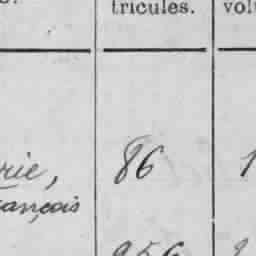 tricules. vol
rie, 86 1
ançois